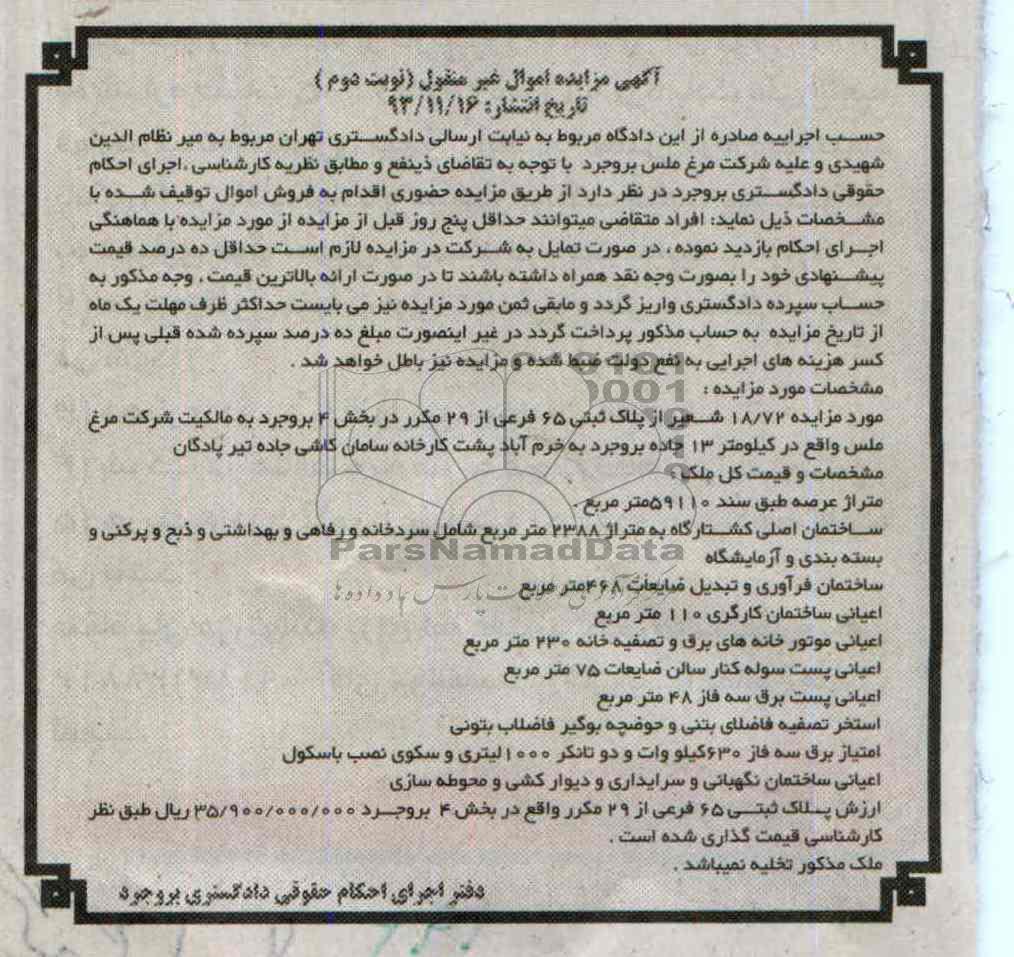 آگهی مزایده اموال غیر منقول (نوبت دوم)
تاریخ انتشار: ۹۳/۱۱/۱۶
حسب اجراییه صادره از این دادگاه مربوط به نیابت ارسالی دادگستری تهران مربوط به میر نظام الدین
شهیدی و علیه شرکت مرغ ملس بروجرد با توجه به تقاضای ذینفع و مطابق نظریه کارشناسی ،اجرای احکام
حقوقی دادگستری بروجرد در نظر دارد از طریق مزایده حضوری اقدام به فروش اموال توقیف شده با
مشخصات ذیل نماید: افراد متقاضی میتوانند حداقل پنج روز قبل از مزایده از مورد مزایده با هماهنگی
اجرای احکام بازدید نموده ، در صورت تمایل به شرکت در مزایده لازم است حداقل ده درصد قیمت
پیشنهادی خود را بصورت وجه نقد همراه داشته باشند تا در صورت ارائه بالاترین قیمت ، وجه مذکور به
حساب سپرده دادگستری واریز گردد و مابقی ثمن مورد مزایده نیز می بایست حداکثر ظرف مهلت یک ماه
از تاریخ مزایده به حساب مذکور پرداخت گردد در غیر اینصورت مبلغ ده درصد سپرده شده قبلی پس از
کسر هزینه های اجرایی به نفع دولت ضبط شده و مزایده نیز باطل خواهد شد .
مشخصات مورد مزایده :
مورد مزایده ۱۸/۷۲ شعیر از پلاک ثبتی ۶۵ فرعی از ۲۹ مکرر در بخش ۴ بروجرد به مالکیت شرکت مرغ
ملس واقع در کیلومتر ۱۳ جاده بروجرد به خرم آباد پشت کارخانه سامان کاشی جاده تیر پادگان
مشخصات و قیمت کل ملک :
متراژ عرصه طبق سند ۵۹۱۱۰متر مربع .
ساختمان اصلی کشتارگاه به متراژ ۲۳۸۸ متر مربع شامل سردخانه و رفاهی و بهداشتی و ذبح و پرکنی و
بسته بندی و آزمایشگاه
ParsNamadData
ساختمان فرآوری و تبدیل ضایعات ۴۶۸متر مربع
اعیانی ساختمان کارگری ۱۱۰ متر مربع
اعیانی موتور خانه های برق و تصفیه خانه ۲۳۰ متر مربع
اعیانی پست سوله کنار سالن ضایعات ۷۵ متر مربع
اعیانی پست برق سه فاز ۴۸ متر مربع
استخر تصفیه فاضلای بتنی و حوضچه بوگیر فاضلاب بتونی
امتیاز برق سه فاز ۶۳۰کیلو وات و دو تانکر ۱۰۰۰لیتری و سکوی نصب باسکول
اعیانی ساختمان نگهبانی و سرایداری و دیوار کشی و محوطه سازی
ارزش پلاک ثبتی ۶۵ فرعی از ۲۹ مکرر واقع در بخش ۴ بروجرد ۳۵/۹۰۰/۰۰۰/۰۰۰ ریال طبق نظر
کارشناسی قیمت گذاری شده است .
ملک مذکور تخلیه نمیباشد .
دفتر اجرای احکام حقوقی دادگستری بروجرد